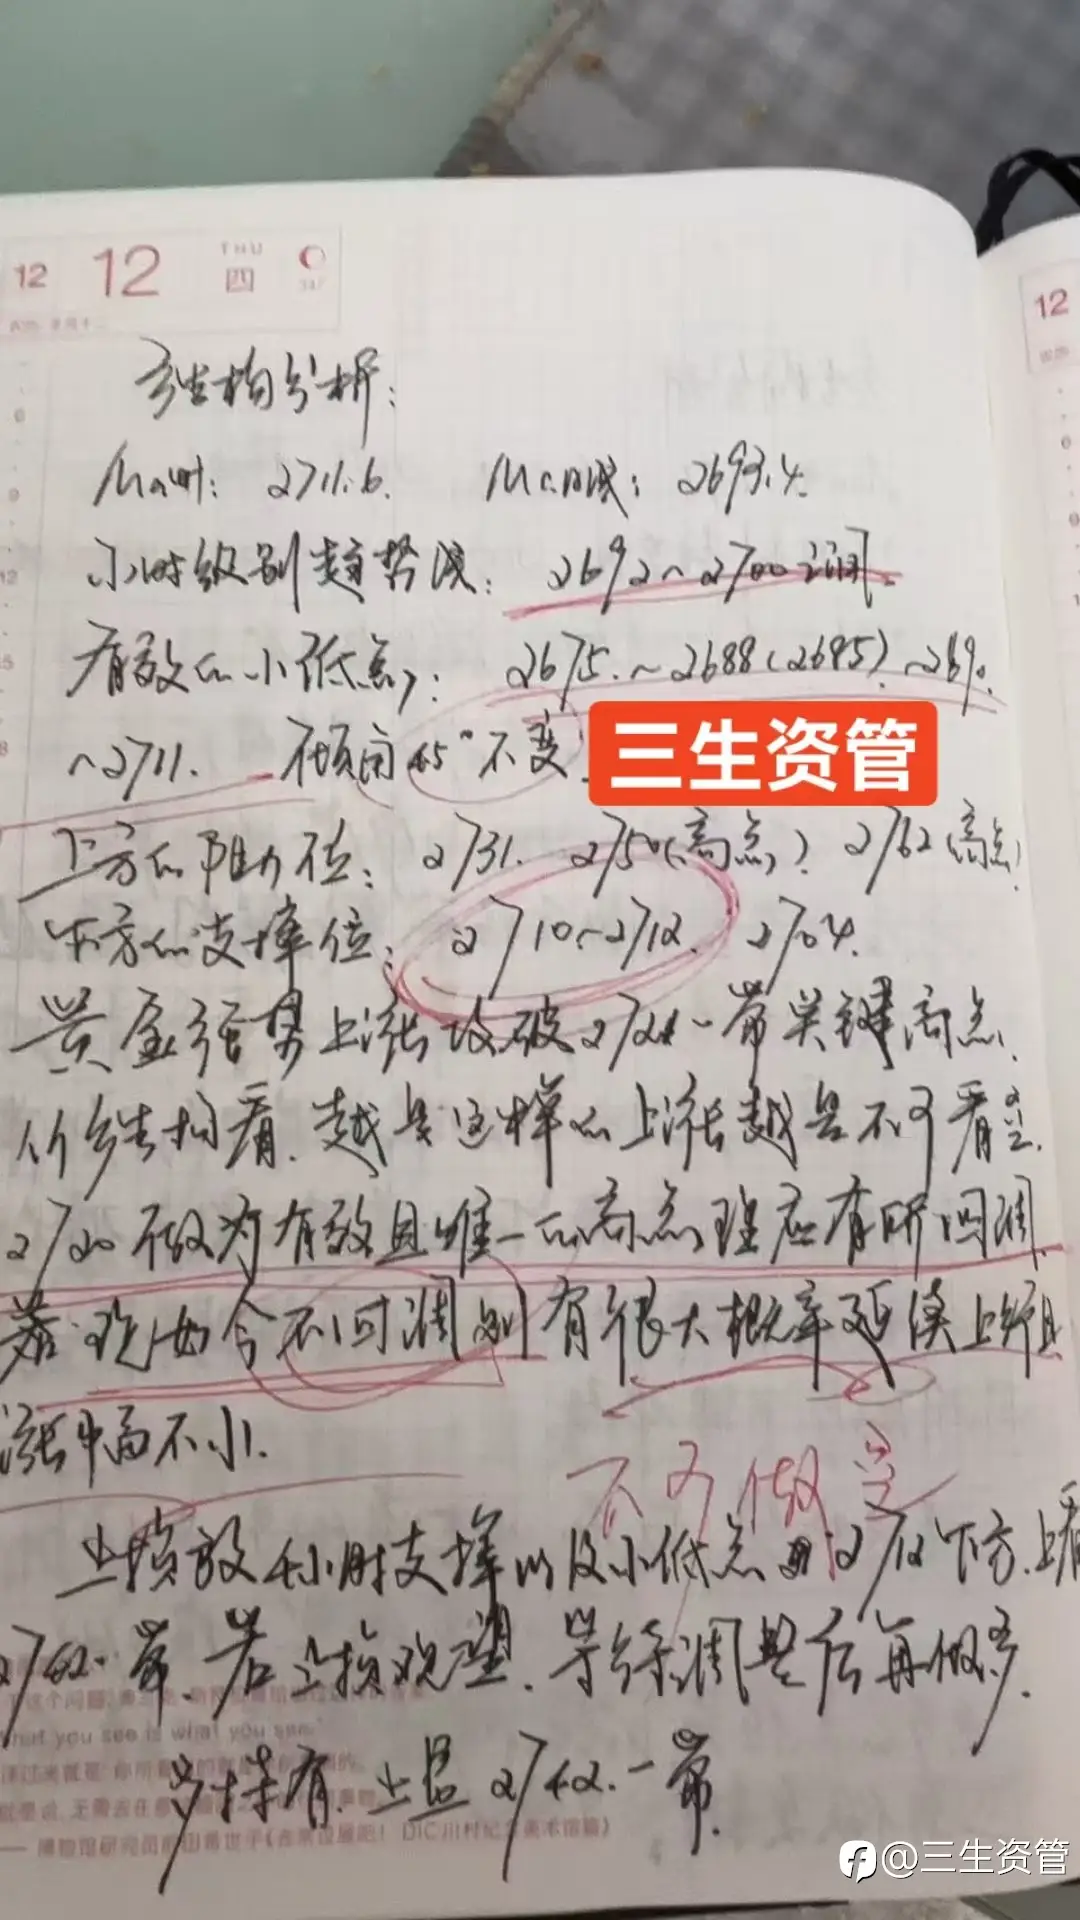 12 12 THU 四
12
结构分析:
Ma时: 2711.6. Ma日线: 2693.4.
小时级别趋势线: 2692~2700之间.
有效的小低点: 2675.~2688(2685).~2690.
~2711. 倾角45°不变
三生资管
上方的阻力位: 2731. 2750(高点) 2762(高点)
下方的支撑位: 2710~2712. 2704.
黄金强势上涨攻破2720一带关键高点.
从结构看.越是这样的上涨越是不可看空.
2720做为有效且唯一的高点理应有所回调.
若现如今不回调则有很大概率延续上行且
涨幅不小.
不可做空
止损放4小时支撑以及小低点 2712下方.上看
一带.若止损观望.等待调整后再做多.
多持有.止盈2742.一带.
what you see is what you see.
@三生资管